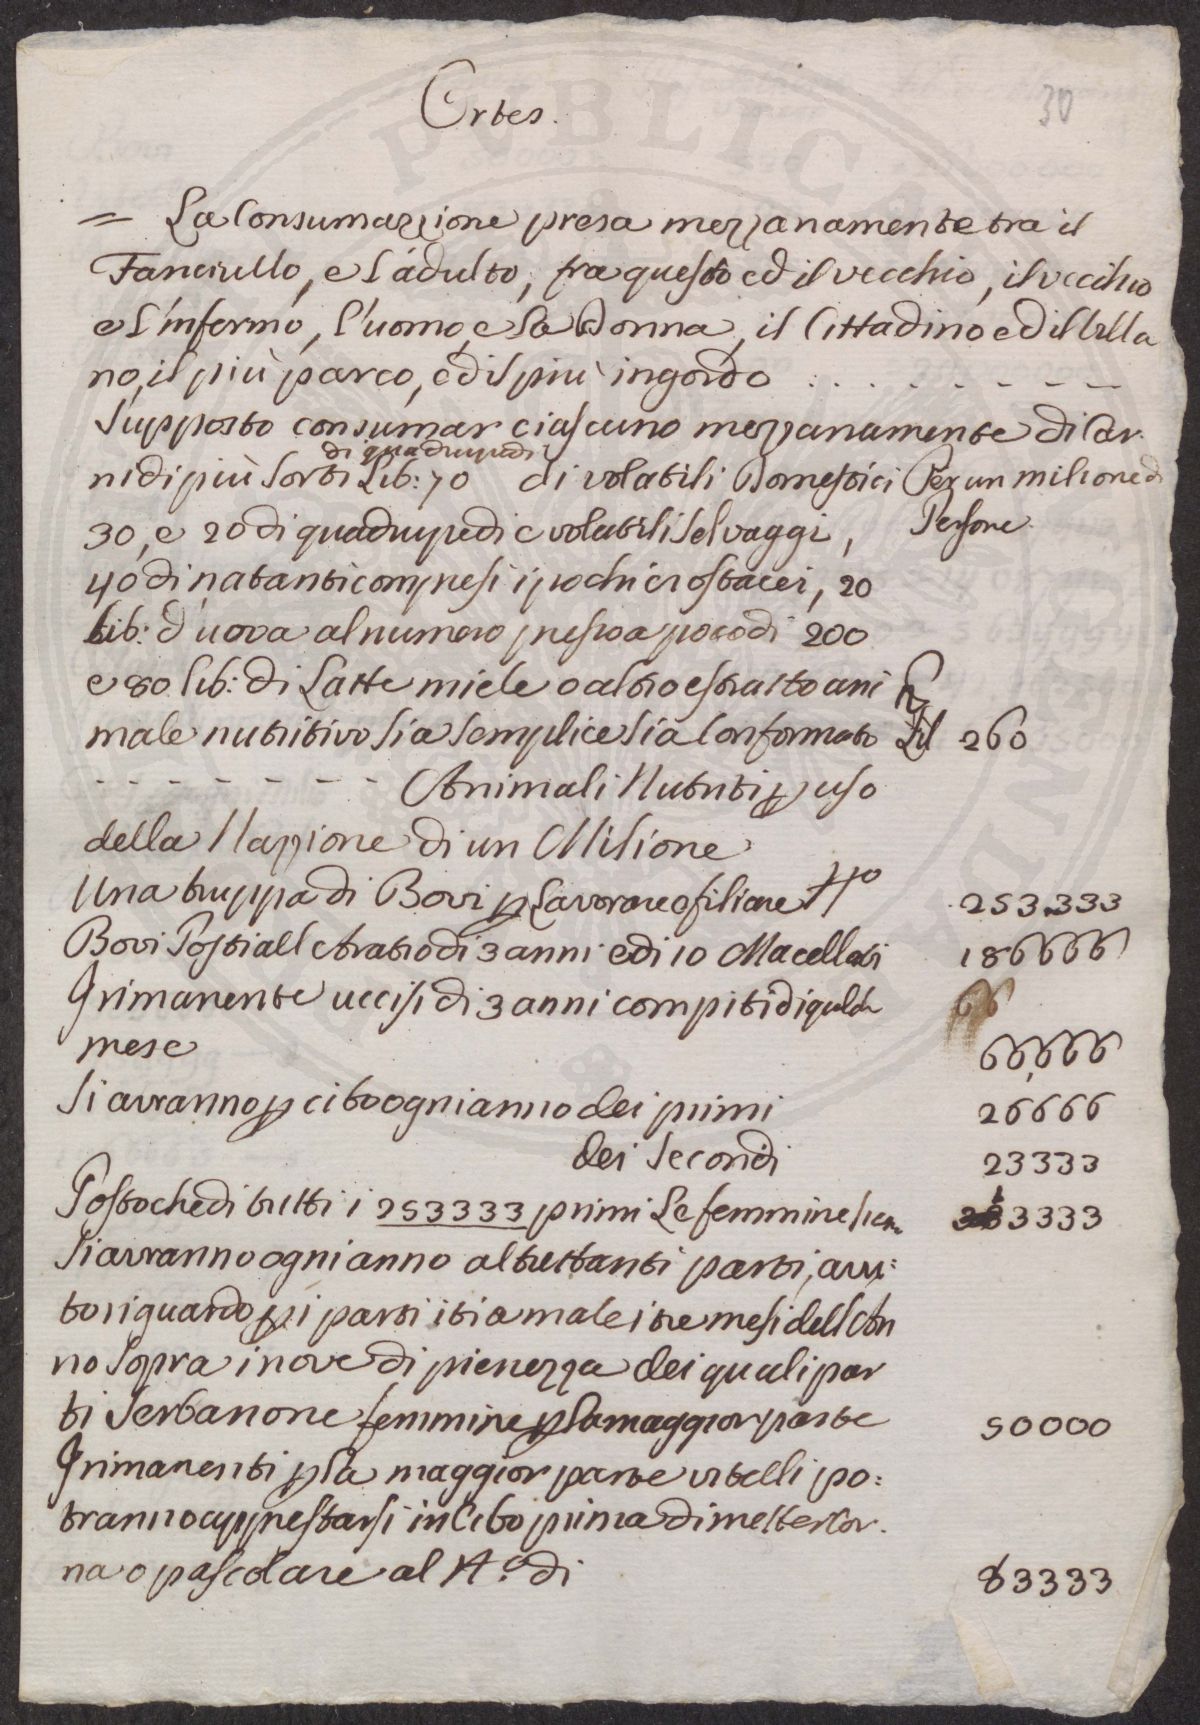 Ortes.
30
= La Consumazzione presa mezzanamente tra il
Fanciullo, e l'adulto, fra questo ed il vecchio, il vecchio
e l'infermo, l'uomo, e la Donna, il Cittadino ed il Villa
no, il più parco, ed il più ingordo . . . . - - - -
Supposto consumar ciascuno mezzanamente di Car-
di quadrupedi
ni di più sorti Lib: 70 di volatili Domestici Per un milione di
30, e 20 di quadrupedi e volatili selvaggi, Persone
40 di natanti compresi i pochi crostacei, 20
Lib: d'uova al numero presso a poco di 200
e 80 lib: di Latte miele o altro estratto ani
male nutritivo sia semplice sia conformato 260
- - - - - - - - Animali Nutriti p uso
della Nazzione di un Milione
Una truppa di Bovi p lavorare o filiare 253.333
Bovi Posti all'Aratro di 3 anni e di 10 Macellati 186666
I rimanenti uccisi di 3 anni compiti di qualch 66
mese 66,666
Si avranno p cibo ogni anno dei primi 26666
dei secondi 23333
Posto che di tutti i 253333 primi Le femmine sien 3333
Si avranno ogni anno altrettanti parti, avu:
to riguardo p i parti iti a male i tre mesi dell'An
no sopra i nove di pienezza dei quali par
ti serbanone femmine p la maggior parte 50000
I rimanenti p la maggior parte vitelli po:
tranno apprestarsi in Cibo prima di metter Cor-
na o pascolare al N.o di 83333